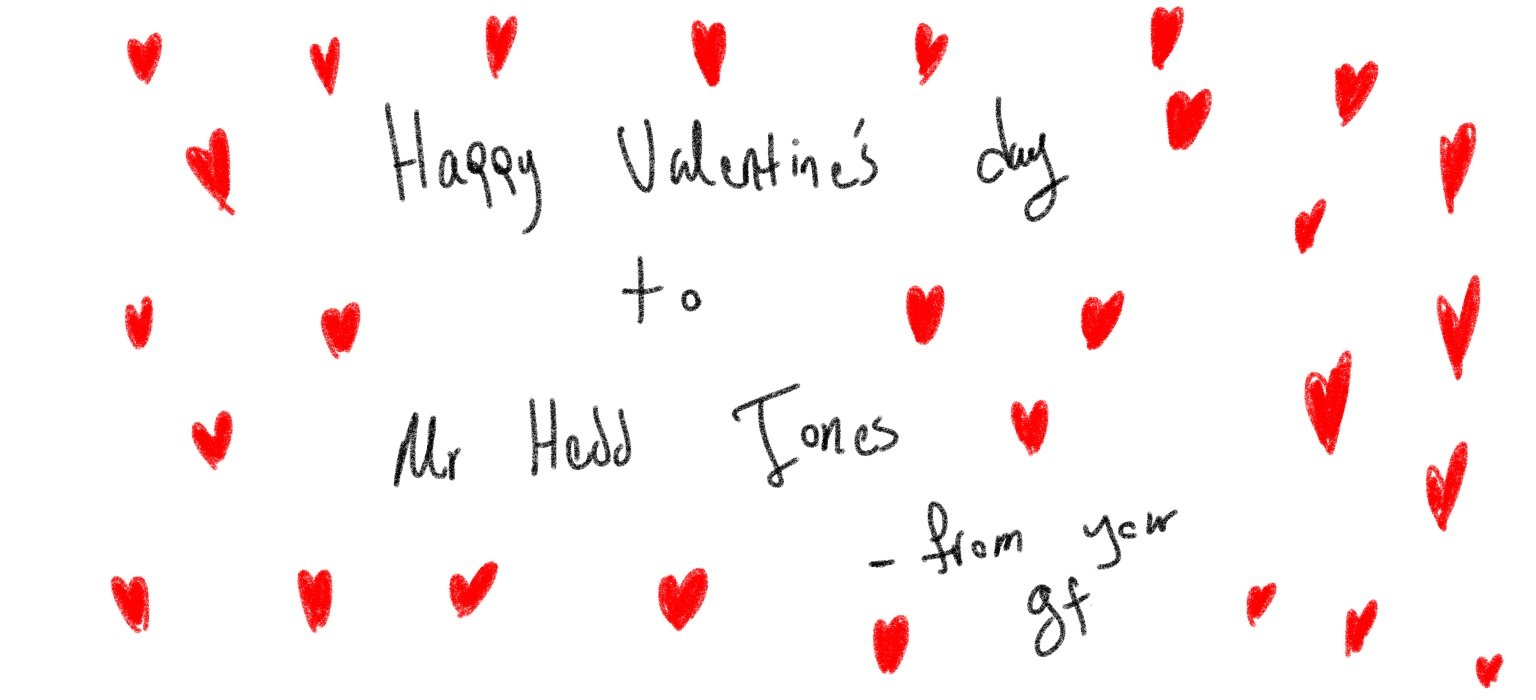 Happy Valentine's day
to
Mr Hedd Jones
- from your
gf